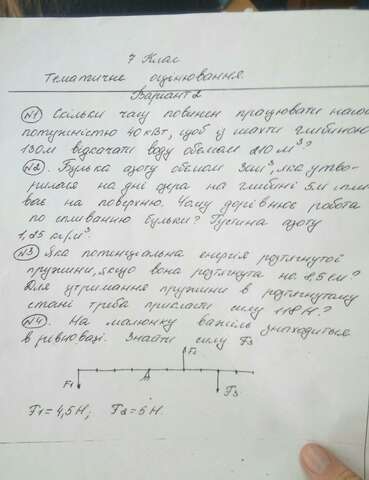 7 Клас
Тематичне оцінювання.
Варіант 2
№1 Скільки часу повинен працювати насос
потужністю 40 кВт, щоб у шахти глибиною
130м відкачати воду обємом 210 м³?
№2. Булька азоту обємом 3см³, яка утво-
рилася на дні озера на глибині 5м спли-
ває на поверхню. Чому дорівнює робота
по спливанню бульки? Густина азоту
1,25 кг/м³.
№3 Яка потенціальна енергія розтягнутої
пружини, якщо вона розтягнута на 8,5см?
Для утримання пружини в розтягнутому
стані треба прикласти силу 118 Н.?
№4. На малюнку важіль знаходиться
в рівновазі. Знайти силу F3
F2
F1
A
F3
F1=4,5Н; F2=6Н.